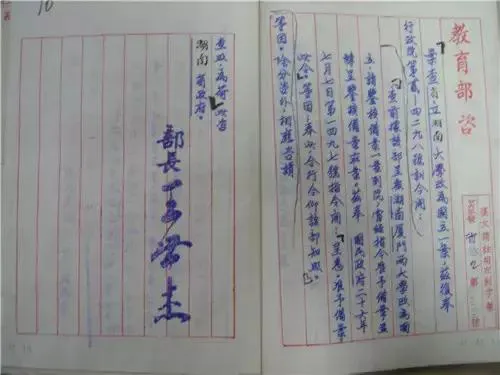 教育部咨
案查省立湖南大學改為國立一案,茲復奉
行政院第貳—四二九八號訓令開:
「查前據該部呈報湖南廈門兩大學改為國
立,請鑒核備案一案到院,當經指令准予備案並
轉呈鑒核備案在案。茲奉 國民政府二十六年
七月七日第一四九七號指令開:『呈悉。准予備案。
此令。』等因。奉此,合行令仰該部知照。」
等因。除分咨外,相應咨請
查照為荷。此咨
湖南省政府。
部長王世杰